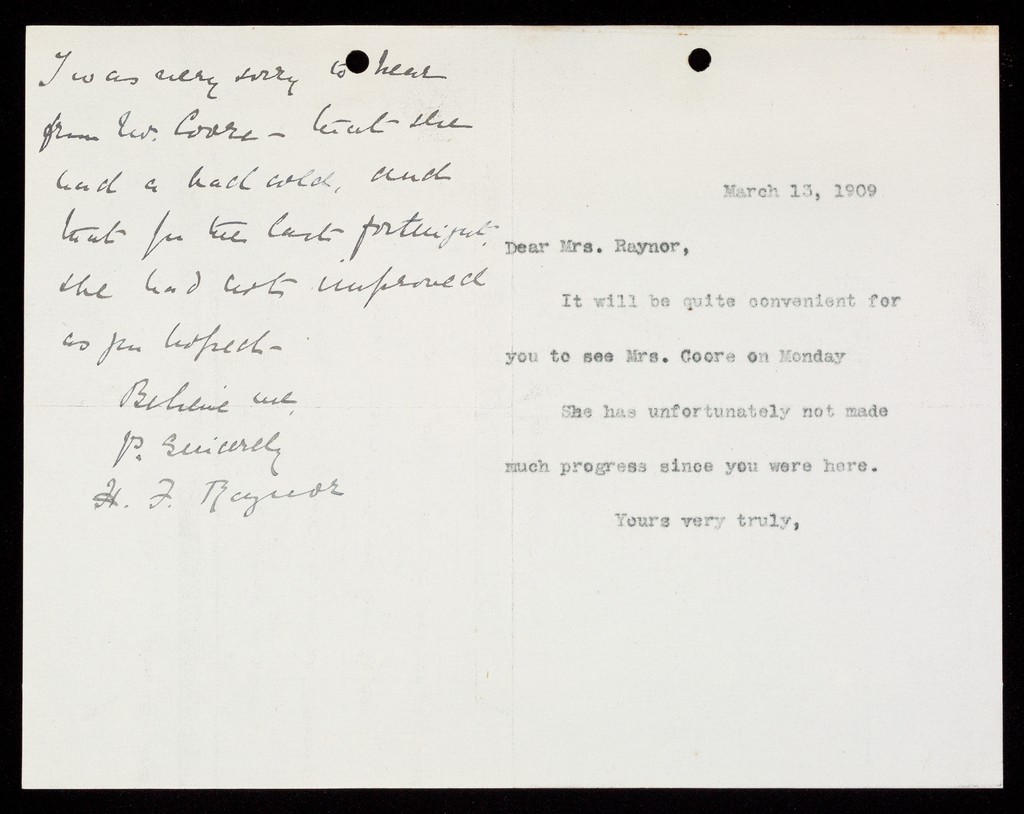 I was very sorry to hear
from Mrs. Coore - that she
had a bad cold, and
that for the last fortnight,
she had not improved
as you hoped -
Believe me,
Yrs. Sincerely
H. F. Raynor
March 13, 1909
Dear Mrs. Raynor,
It will be quite convenient for
you to see Mrs. Coore on Monday
She has unfortunately not made
much progress since you were here.
Yours very truly,